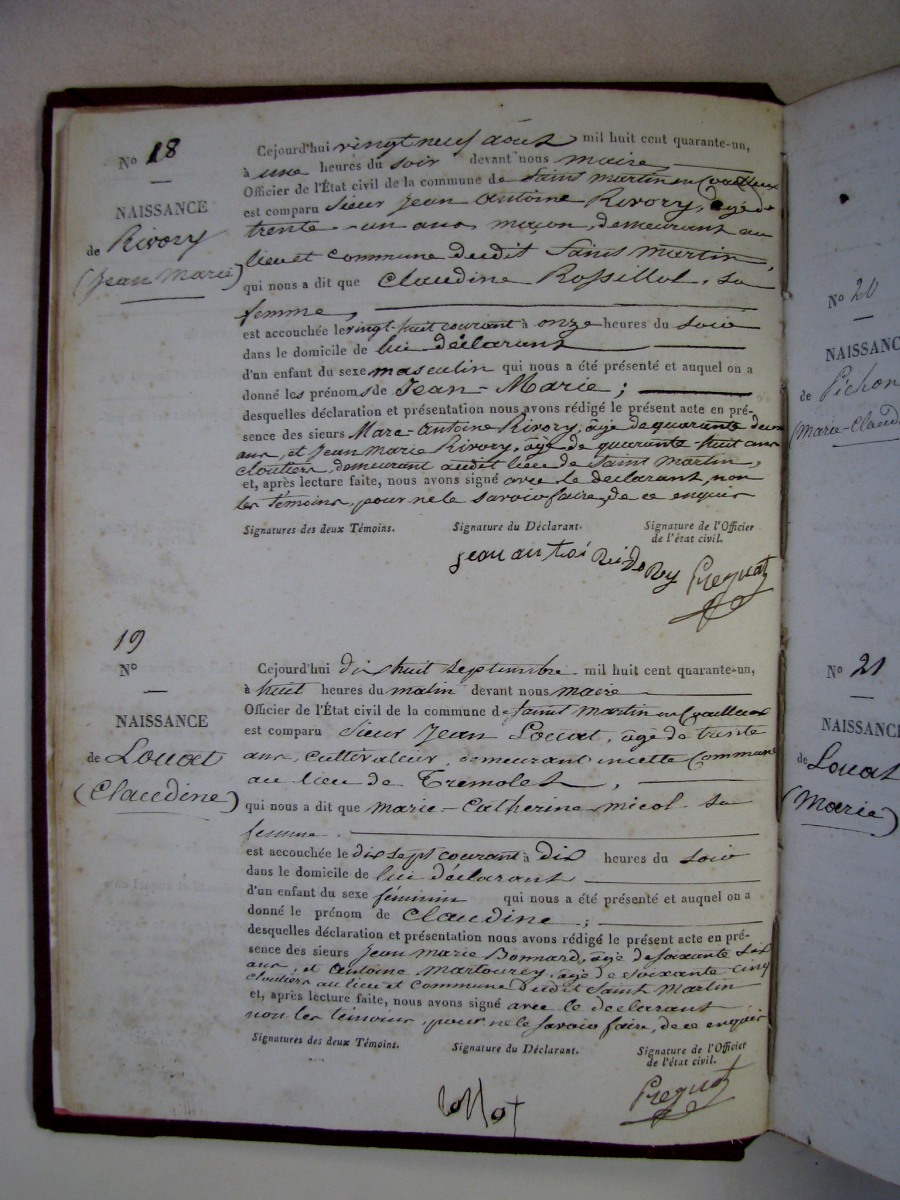 No 18
NAISSANCE
de Rivory
(Jean Marie)
Cejourd'hui vingt neuf août mil huit cent quarante-un,
à une heures du soir devant nous maire
Officier de l'État civil de la commune de Saint Martin en Coailleux
est comparu Sieur Jean Antoine Rivory, âgé de
trente-un ans maçon, demeurant au
lieu et commune dudit Saint Martin,
qui nous a dit que Claudine Rossillol, sa
femme,
est accouchée le vingt-huit courant à onze heures du soir
dans le domicile de lui déclarant
d'un enfant du sexe masculin qui nous a été présenté et auquel on a
donné les prénoms de Jean-Marie;
desquelles déclaration et présentation nous avons rédigé le présent acte en pré-
sence des sieurs Marc-Antoine Rivory, âgé de quarante deux
ans, et Jean Marie Rivory, âgé de quarante-huit ans
cloutiers, demeurant audit lieu de Saint Martin,
et, après lecture faite, nous avons signé avec le déclarant, non
les témoins, pour ne le savoir faire, de ce enquis
Signatures des deux Témoins.
Signature du Déclarant.
Signature de l'Officier
de l'état civil.
jean antoi
Preynat
19
No
NAISSANCE
de Louat
(Claudine)
Cejourd'hui dix huit septembre mil huit cent quarante-un,
à huit heures du matin devant nous maire
Officier de l'État civil de la commune de Saint Martin en Coailleux
est comparu Sieur Jean Louat, âgé de trente
ans, cultivateur, demeurant en cette Commune
au lieu de Tremolet,
qui nous a dit que Marie-Catherine Micol sa
femme.
est accouchée le dix sept courant à dix heures du soir
dans le domicile de lui déclarant
d'un enfant du sexe féminin qui nous a été présenté et auquel on a
donné le prénom de Claudine;
desquelles déclaration et présentation nous avons rédigé le présent acte en pré-
sence des sieurs Jean Marie Bonnard, âgé de soixante six
ans, et Antoine Martourey, âgé de soixante-cinq
cloutiers au lieu et Commune dudit Saint Martin
et, après lecture faite, nous avons signé avec le déclarant
non les témoins, pour ne le savoir faire, de ce enquis
Signatures des deux Témoins.
Signature du Déclarant.
Signature de l'Officier
de l'état civil.
Preynat
No 20
NAISSANC
de Pichon
(Marie-Claud
No 21
NAISSANC
de Louat
(Marie)